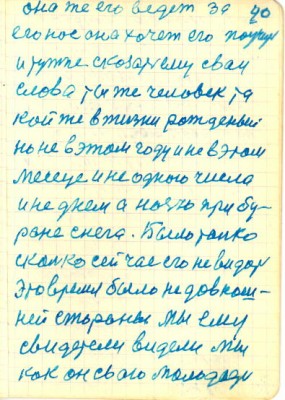 она же его ведет за 40
его нос она хочет его
и тутже сказать ему сваи
слова ты же человек та
кой же в жизни рожденый
но не в этом году и не в этом
месеце и не одного числа
и не днем а ночю при бу-
ране снега. Было толко
сколко сейчас его не видат
Это время было не довнош-
ней стораны мы ему
свидетели видели мы
как он сваго